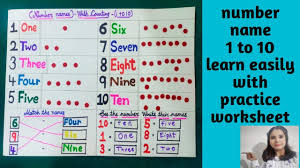 (Number names) With Counting - (1 to 10)
1 One
2 Two
3 Three
4 Four
5 Five
6 Six
7 Seven
8 Eight
9 Nine
10 Ten
Match the names
6 Four
9 Six
4 Nine
See the numbers Write their names
10 - Ten 5 - Five
1 - One 8 - Eight
3 - Three 2 - Two
number
name
1 to 10
learn easily
with
practice
worksheet